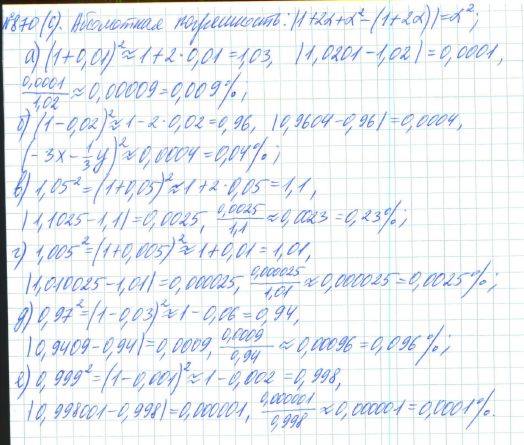 №870(с). Абсолютная погрешность: |1+2α+α²-(1+2α)|=α²;
а) (1+0,01)²≈1+2·0,01=1,03, |1,0201-1,02|=0,0001,
0,0001/1,02≈0,00009=0,009%;
б) (1-0,02)²≈1-2·0,02=0,96, |0,9604-0,96|=0,0004,
(-3x-1/3y)²≈0,0004=0,04%;
в) 1,05²=(1+0,05)²≈1+2·0,05=1,1,
|1,1025-1,1|=0,0025, 0,0025/1,1≈0,0023=0,23%;
г) 1,005²=(1+0,005)²≈1+0,01=1,01,
|1,010025-1,01|=0,000025, 0,000025/1,01≈0,000025=0,0025%;
д) 0,97²=(1-0,03)²≈1-0,06=0,94,
|0,9409-0,94|=0,0009, 0,0009/0,94≈0,00096=0,096%;
е) 0,999²=(1-0,001)²≈1-0,002=0,998,
|0,998001-0,998|=0,000001, 0,000001/0,998≈0,00001=0,0001%.